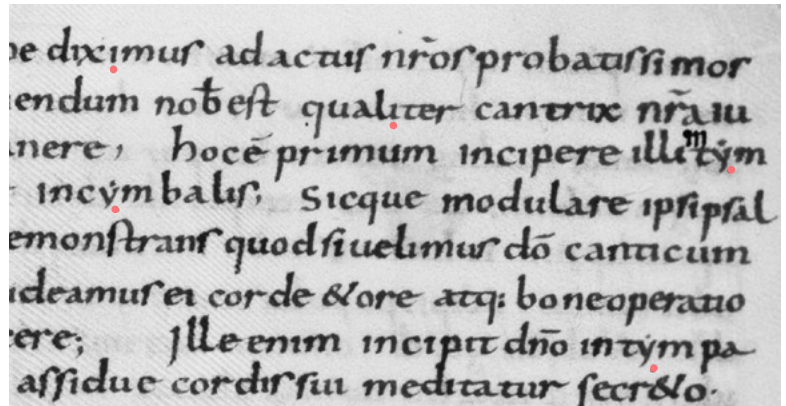 diximus ad actus nr̄os probatissimos
endum nob̄ est qualiter cantrix nr̄a iu
nere, hoc ē primum incipere illi tẏm
in cẏmbalis, Sicque modulare ipsi psal
emonstrans quod si uelimus dō canticum
ideamus ei corde & ore atq; bone operatio
ere; Ille enim incipit dn̄o in tẏmpa
assidue cordis sui meditatur secr&o.